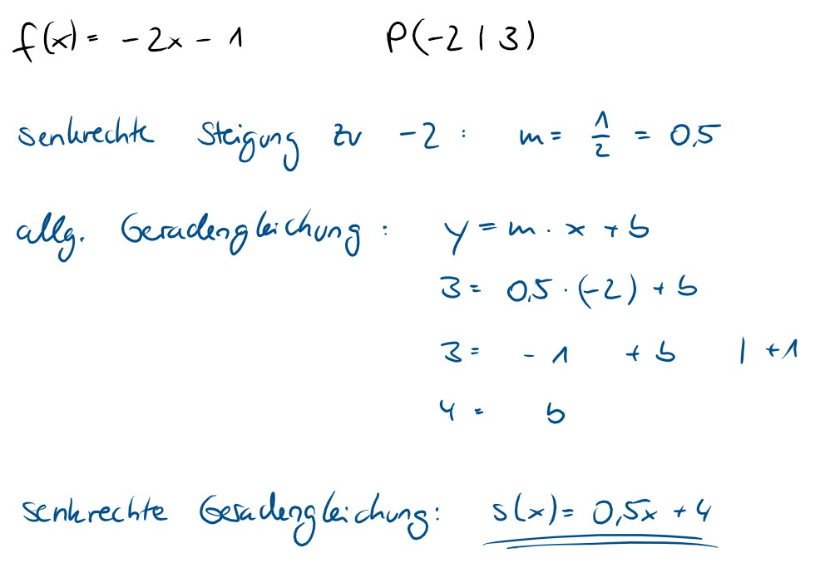 f(x) = -2x - 1 P(-2 | 3)
senkrechte Steigung zu -2 : m = 1/2 = 0,5
allg. Geradengleichung : y = m · x + b
3 = 0,5 · (-2) + b
3 = - 1 + b | +1
4 = b
senkrechte Geradengleichung: s(x) = 0,5x + 4